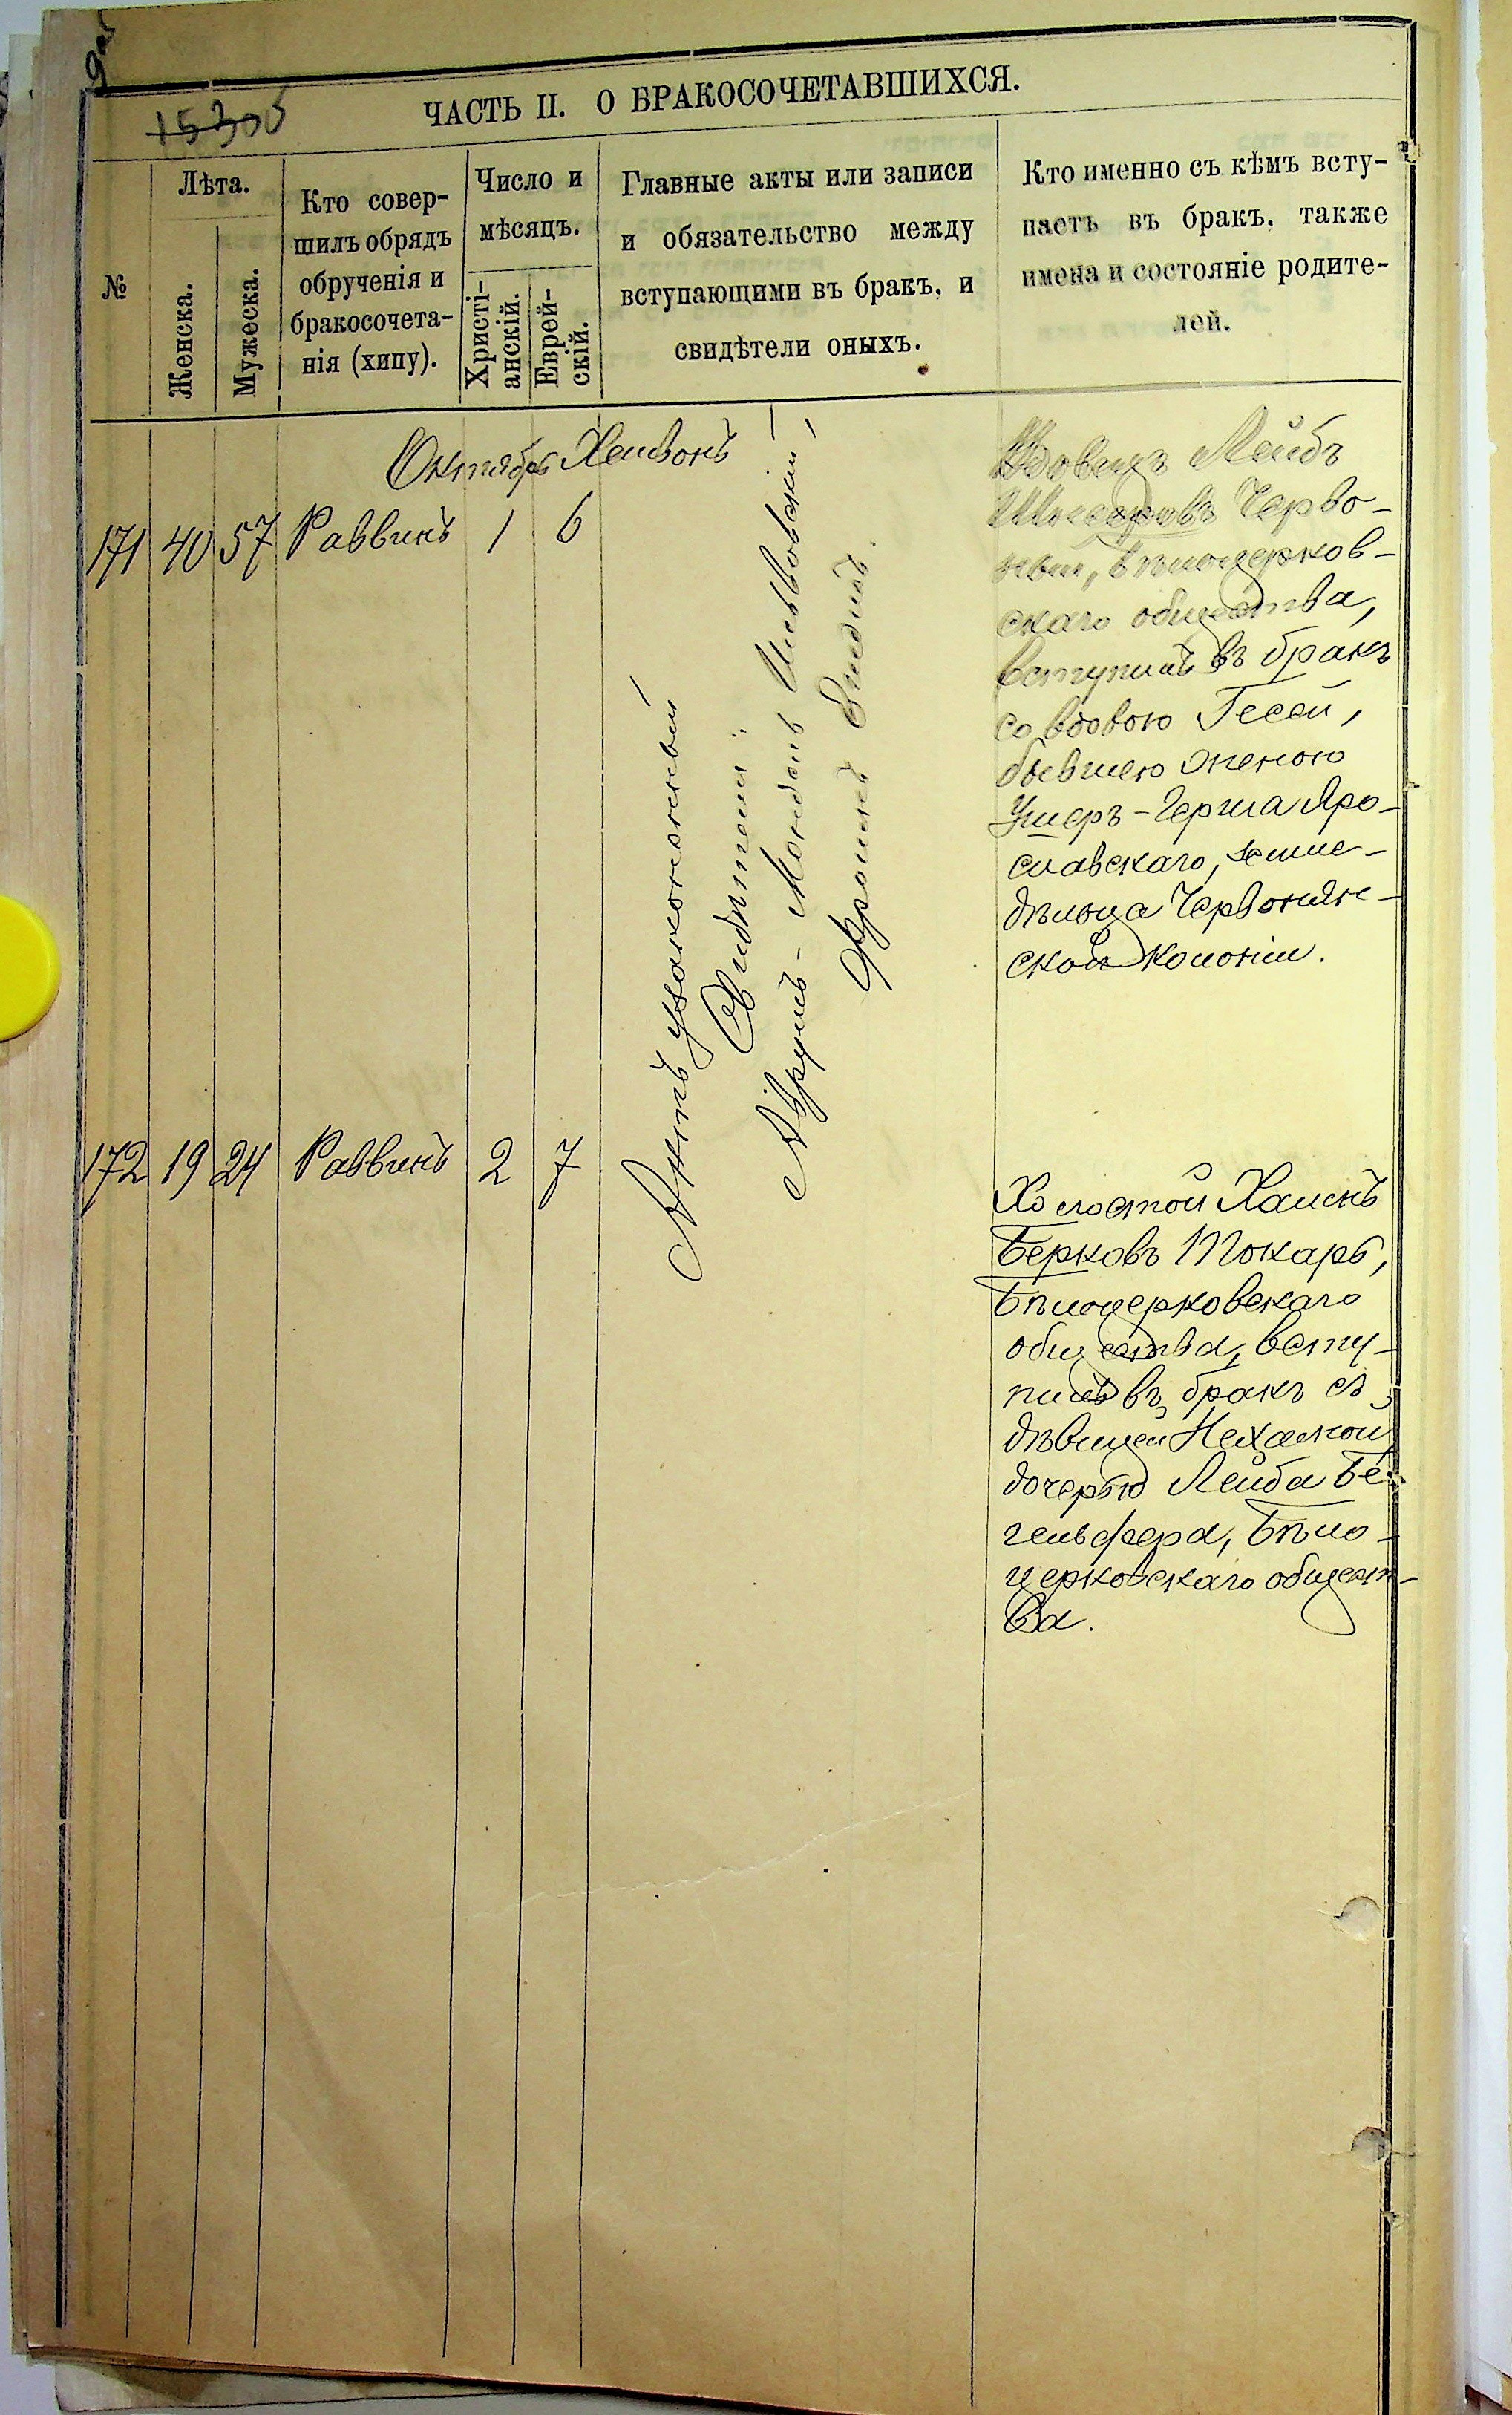 ЧАСТЬ II. О БРАКОСОЧЕТАВШИХСЯ.
№
Лѣта.
Женска.
Мужеска.
Кто совер-
шилъ обрядъ
обрученія и
бракосочета-
нія (хипу).
Число и
мѣсяцъ.
Христі-
анскій.
Еврей-
скій.
Главные акты или записи
и обязательство между
вступающими въ бракъ, и
свидѣтели оныхъ.
Кто именно съ кѣмъ всту-
паетъ въ бракъ, также
имена и состояніе родите-
лей.
Октябрь Хешвонъ
171 40 57 Раввинъ 1 6
Актъ узаконенный
Свидѣтели:
Аврумъ-Мендель
Фроимъ
Вдовецъ Лейбъ
Черво-
ный, Бѣлоцерков-
скаго общества,
вступилъ въ бракъ
со вдовою Гесей,
бывшею женою
Ушеръ-Герша Яро-
славскаго, земле-
дѣльца Червонян-
ской колоніи.
172 19 24 Раввинъ 2 7
Холостой Хаимъ
Берковъ Токарь,
Бѣлоцерковскаго
общества, всту-
пилъ въ бракъ съ
дѣвицей Нехамой
дочерью Лейба Бе-
гельфера, Бѣло-
церковскаго общест-
ва.